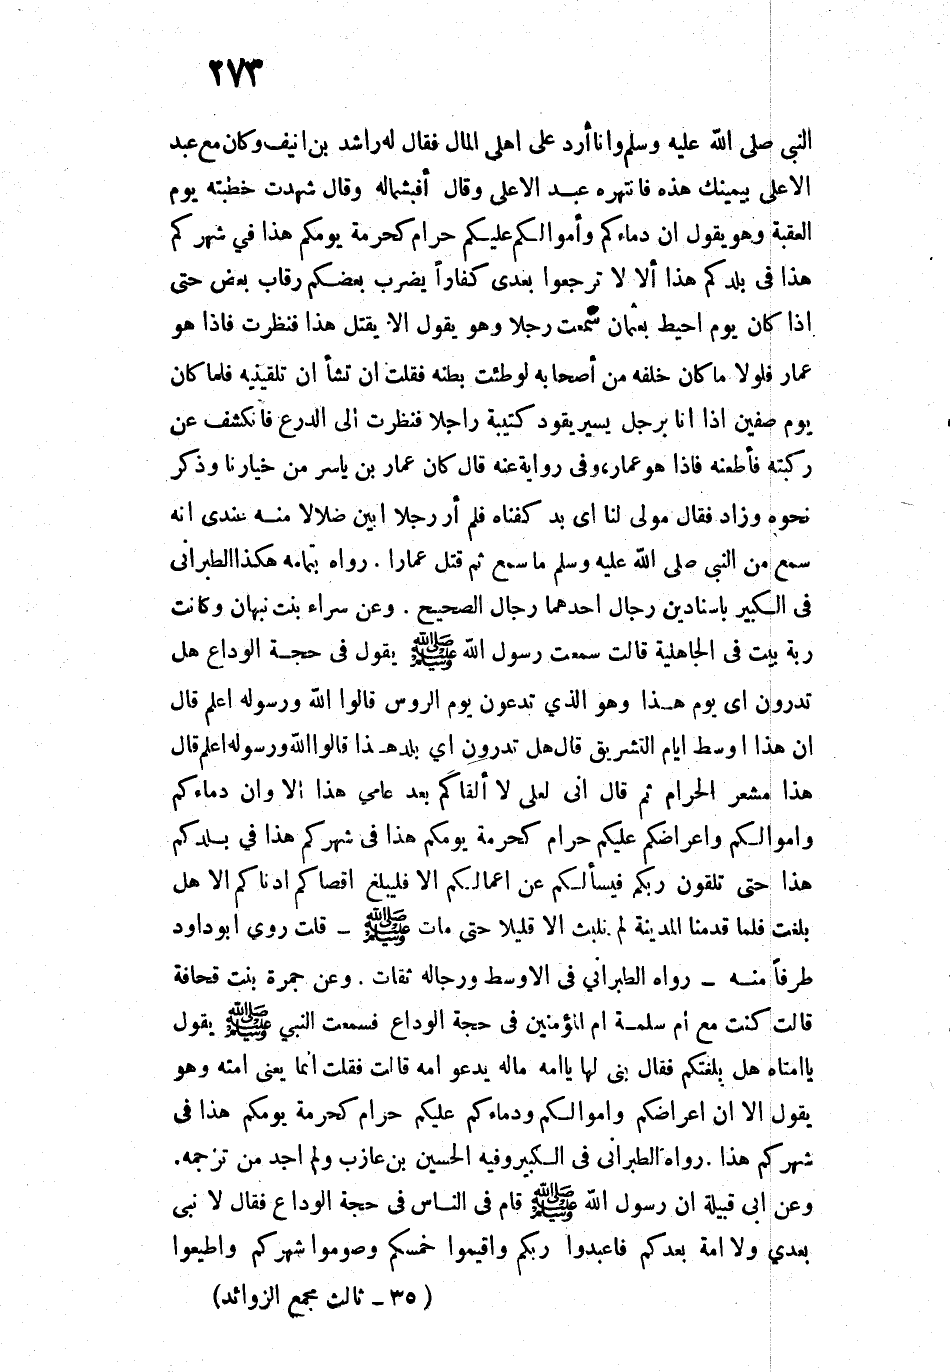 ٢٧٣
النبي صلى الله عليه وسلم وانا أرد على اهلى المال فقال له راشد بن انيف وكان مع عبد
الاعلى بيمينك هذه فانتهره عبد الاعلى وقال أفبشماله وقال شهدت خطبته يوم
العقبة وهو يقول ان دماءكم وأموالكم عليكم حرام كحرمة يومكم هذا في شهركم
هذا فى بلدكم هذا ألا لا ترجعوا بعدى كفاراً يضرب بعضكم رقاب بعض حتى
اذا كان يوم احيط بعثمان سمعت رجلا وهو يقول الا يقتل هذا فنظرت فاذا هو
عمار فلولا ما كان خلفه من أصحابه لوطئت بطنه فقلت ان تشأ ان تلقينيه فلما كان
يوم صفين اذا انا برجل يسير يقود كتيبة راجلا فنظرت الى الدرع فانكشف عن
ركبته فأطعنه فاذا هو عمار، وفى رواية عنه قال كان عمار بن ياسر من خيارنا وذكر
نحوه وزاد فقال مولى لنا اى يد كفتاه فلم أر رجلا ابين ضلالا منه عندى انه
سمع من النبى صلى الله عليه وسلم ما سمع ثم قتل عمارا . رواه بتمامه هكذا الطبرانى
فى الكبير باسنادين رجال احدهما رجال الصحيح . وعن سراء بنت نبهان وكانت
ربة بيت فى الجاهلية قالت سمعت رسول الله ﷺ يقول فى حجة الوداع هل
تدرون اى يوم هذا وهو الذي تدعون يوم الروس قالوا الله ورسوله اعلم قال
ان هذا اوسط ايام التشريق قال هل تدرون اي بلد هذا قالوا الله ورسوله اعلم قال
هذا مشعر الحرام ثم قال انى لعلى لا ألقاكم بعد عامي هذا الا وان دماءكم
واموالكم واعراضكم عليكم حرام كحرمة يومكم هذا فى شهركم هذا في بلدكم
هذا حتى تلقون ربكم فيسألكم عن اعمالكم الا فليبلغ اقصاكم ادناكم الا هل
بلغت فلما قدمنا المدينة لم نلبث الا قليلا حتى مات ﷺ ـ قلت روي ابو داود
طرفاً منه ـ رواه الطبراني فى الاوسط ورجاله ثقات . وعن جمرة بنت قحافة
قالت كنت مع أم سلمة ام المؤمنين فى حجة الوداع فسمعت النبي ﷺ يقول
ياامتاه هل بلغتكم فقال بنى لها ياامه ماله يدعو امه قالت فقلت انما يعنى امته وهو
يقول الا ان اعراضكم واموالكم ودماءكم عليكم حرام كحرمة يومكم هذا فى
شهركم هذا . رواه الطبرانى فى الكبير وفيه الحسين بن عازب ولم اجد من ترجمه .
وعن ابى قبيلة ان رسول الله ﷺ قام فى الناس فى حجة الوداع فقال لا نبى
بعدي ولا امة بعدكم فاعبدوا ربكم واقيموا خمسكم وصوموا شهركم واطيعوا
( ٣٥ ـ ثالث مجمع الزوائد)